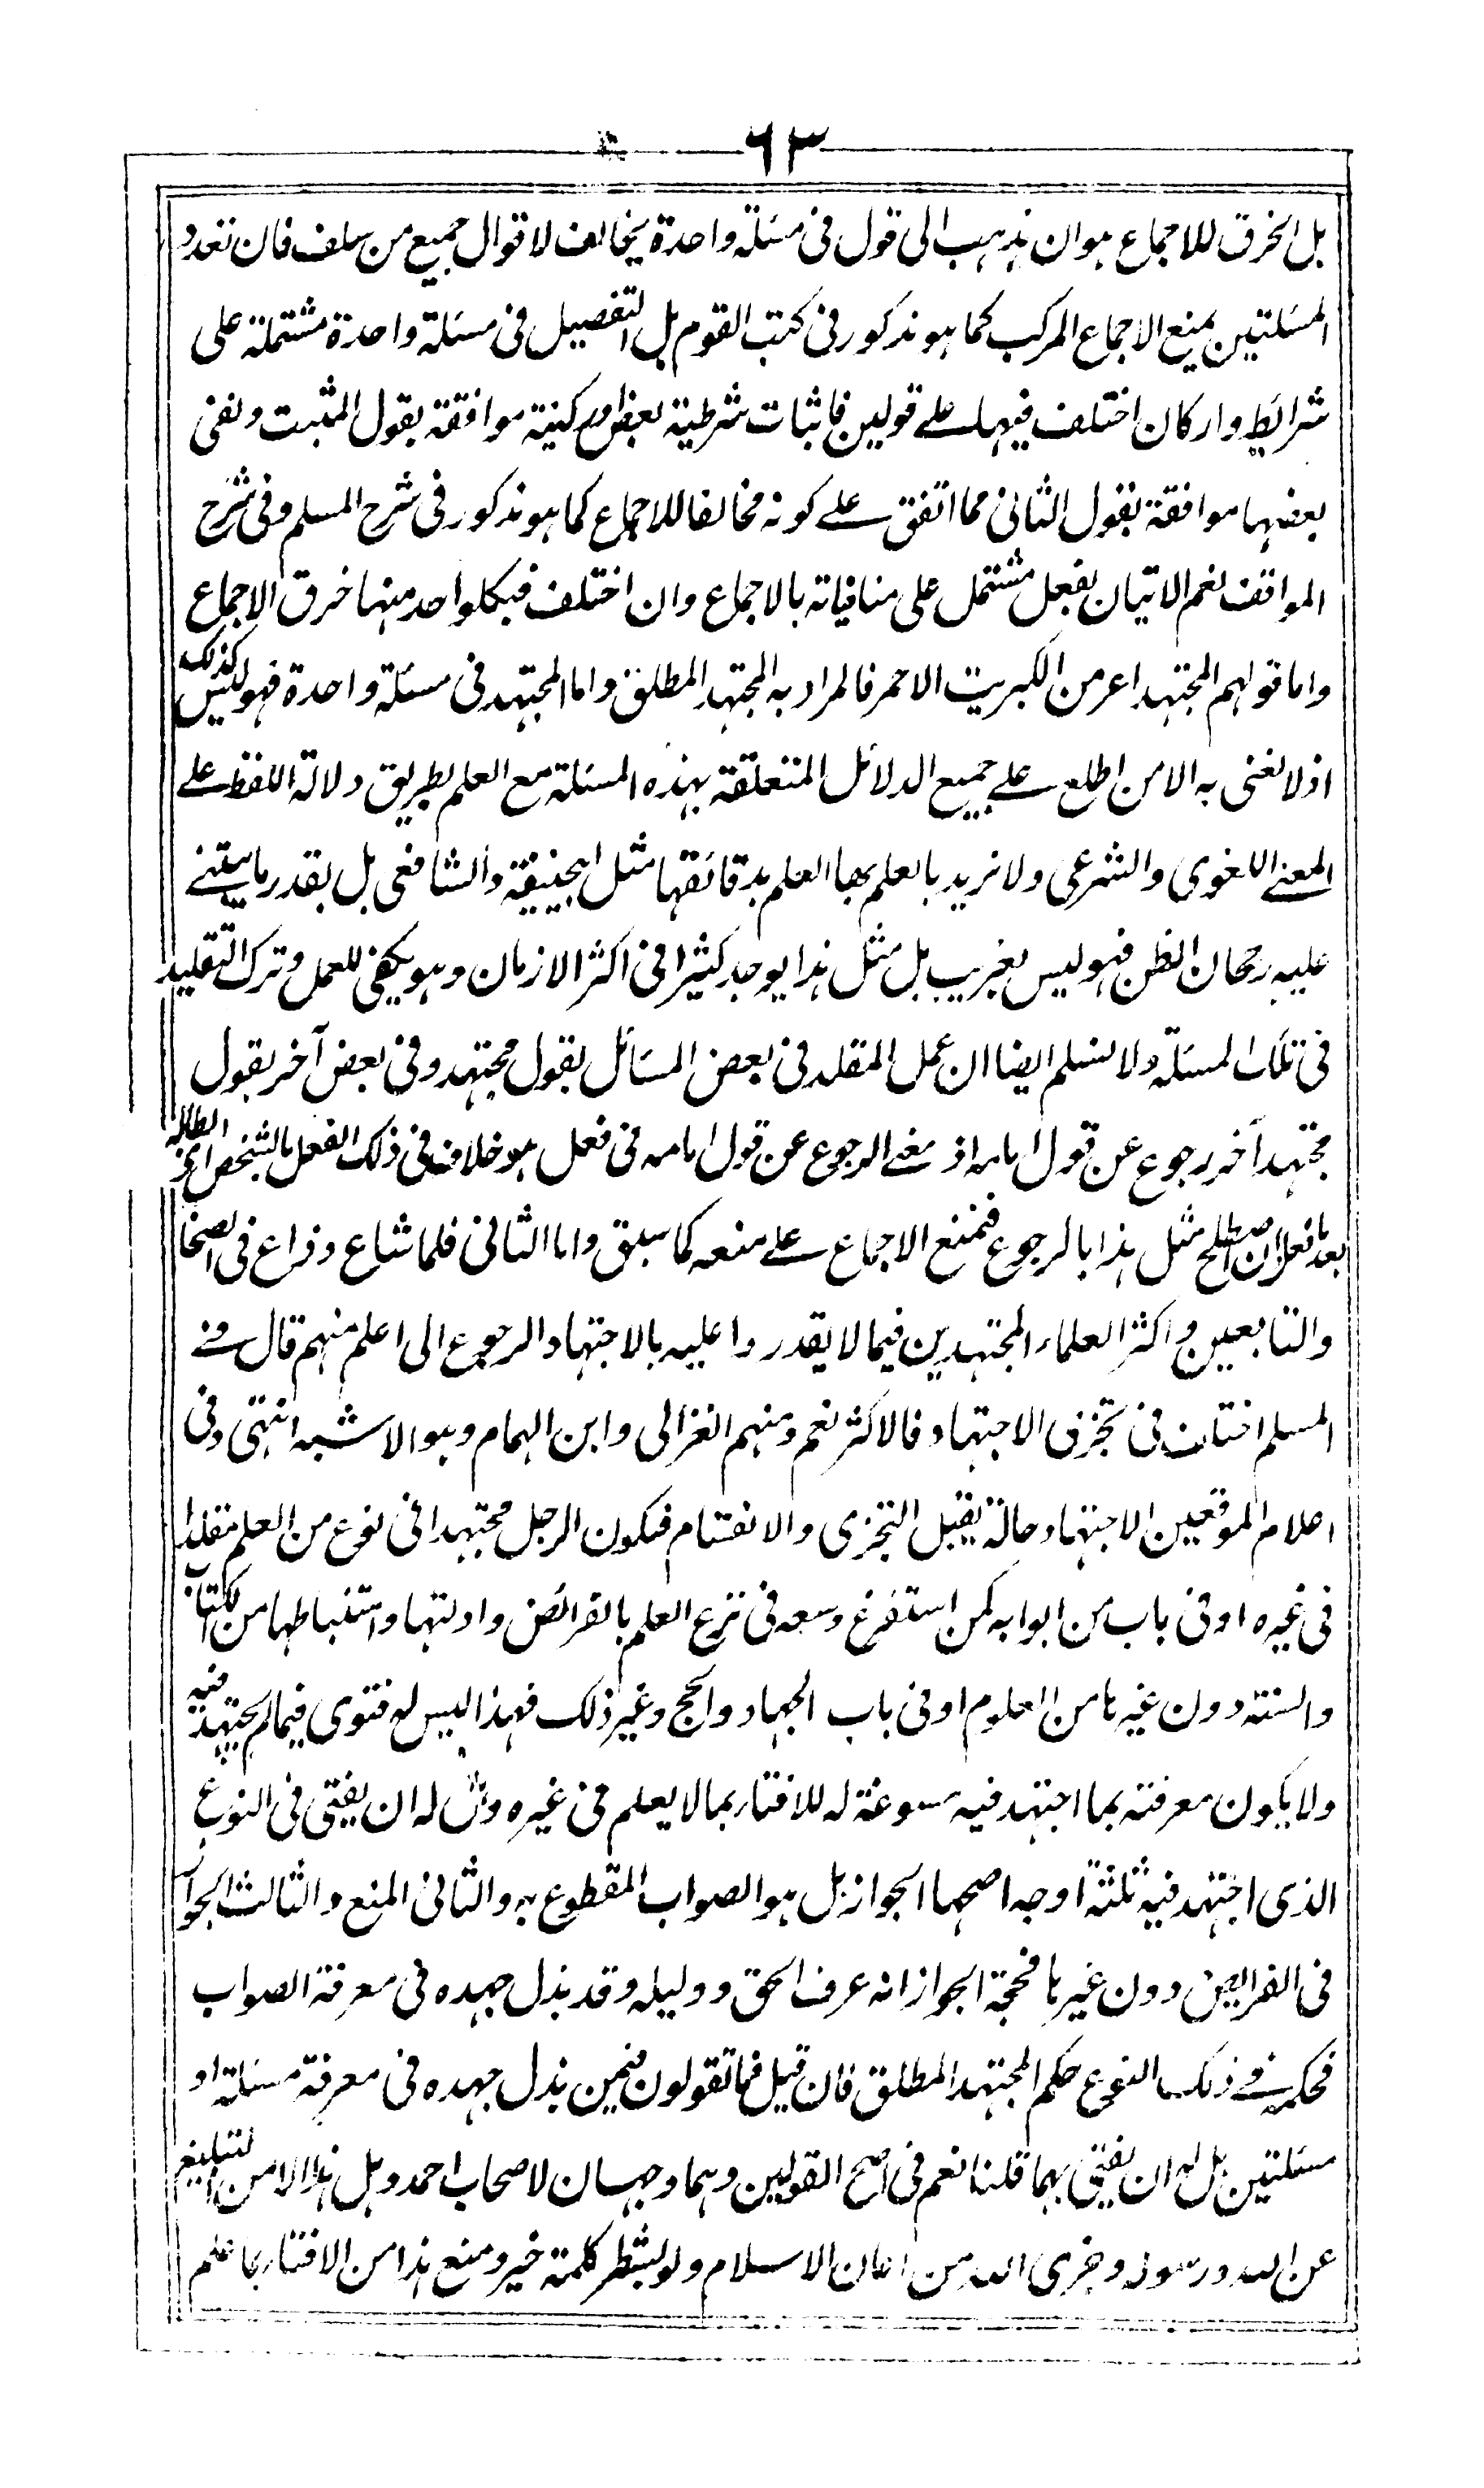 ٦٣
بل الخرق للاجماع هو ان يذهب الى قول فى مسئلة واحدة يخالف لاقوال جميع من سلف فان تعدد
المسئلتين يمنع الاجماع المركب كما هو مذكور فى كتب القوم بل التفصيل فى مسئلة واحدة مشتملة على
شرائط واركان اختلف فيها على قولين فاثبات شرطية بعض او ركنية موافقة بقول المثبت ونفى
بعضها موافقة بقول الثانى مما اتفق على كونه مخالفا للاجماع كما هو مذكور فى شرح المسلم وفى شرح
المواقف نعم الاتيان بفعل مشتمل على منافياته بالاجماع وان اختلف فبكل واحد منها خرق الاجماع
واما قولهم المجتهد اعز من الكبريت الاحمر فالمراد به المجتهد المطلق واما المجتهد فى مسئلة واحدة فهو ليس كذلك
اذ لا نعنى به الا من اطلع على جميع الدلائل المتعلقة بهذه المسئلة مع العلم بطريق دلالة اللفظ على
المعنى اللغوى والشرعى ولا نريد بالعلم بها العلم بدقائقها مثل ابيحنيفة والشافعى بل بقدر ما يبتنى
عليه رجحان الظن فهو ليس بغريب بل مثل هذا يوجد كثيرا فى اكثر الازمان وهو يكفى للعمل وترك التقليد
فى تلك المسئلة ولا نسلم ايضا ان عمل المقلد فى بعض المسائل بقول مجتهد وفى بعض آخر بقول
مجتهد آخر رجوع عن قول امامه اذ معنى الرجوع عن قول امامه فى فعل هو خلافه فى ذلك الفعل بالشخص
بعد ما فعل وان اصطلح مثل هذا بالرجوع فنمنع الاجماع على منعه كما سبق واما الثانى فلما شاع وذاع فى الصحابة
والتابعين واكثر العلماء المجتهدين فيما لا يقدروا عليه بالاجتهاد الرجوع الى اعلم منهم قال فى
المسلم اختلف فى تجزى الاجتهاد فالاكثر نعم ومنهم الغزالى وابن الهمام وهو الاشبه انتهى وفى
اعلام الموقعين الاجتهاد حالة يقبل التجزى والانقسام فيكون الرجل مجتهدا فى نوع من العلم مقلدا
فى غيره او فى باب من ابوابه كمن استفرغ وسعه فى نوع العلم بالفرائض وادلتها واستنباطها من الكتاب
والسنة دون غيرها من العلوم او فى باب الجهاد والحج وغير ذلك فهذا ليس له فتوى فيما لم يجتهد فيه
ولا يكون معرفته بما اجتهد فيه مسوغة له للافتاء بما لا يعلم فى غيره وهل له ان يفتى فى النوع
الذى اجتهد فيه ثلثة اوجه اصحها الجواز بل هو الصواب المقطوع به والثانى المنع والثالث الجواز
فى الفرايض دون غيرها فحجة الجواز انه عرف الحق ودليله وقد بذل جهده فى معرفة الصواب
فحكمه فى ذلك النوع حكم المجتهد المطلق فان قيل فما تقولون فيمن بذل جهده فى معرفة مسئلة او
مسئلتين هل له ان يفتى بهما قلنا نعم فى اصح القولين وهما وجهان لاصحاب احمد وهل هذا الا من التبليغ
عن الله ورسوله وجزى الله من اعان الاسلام ولو بشطر كلمة خير ومنع هذا من الافتاء بما علم